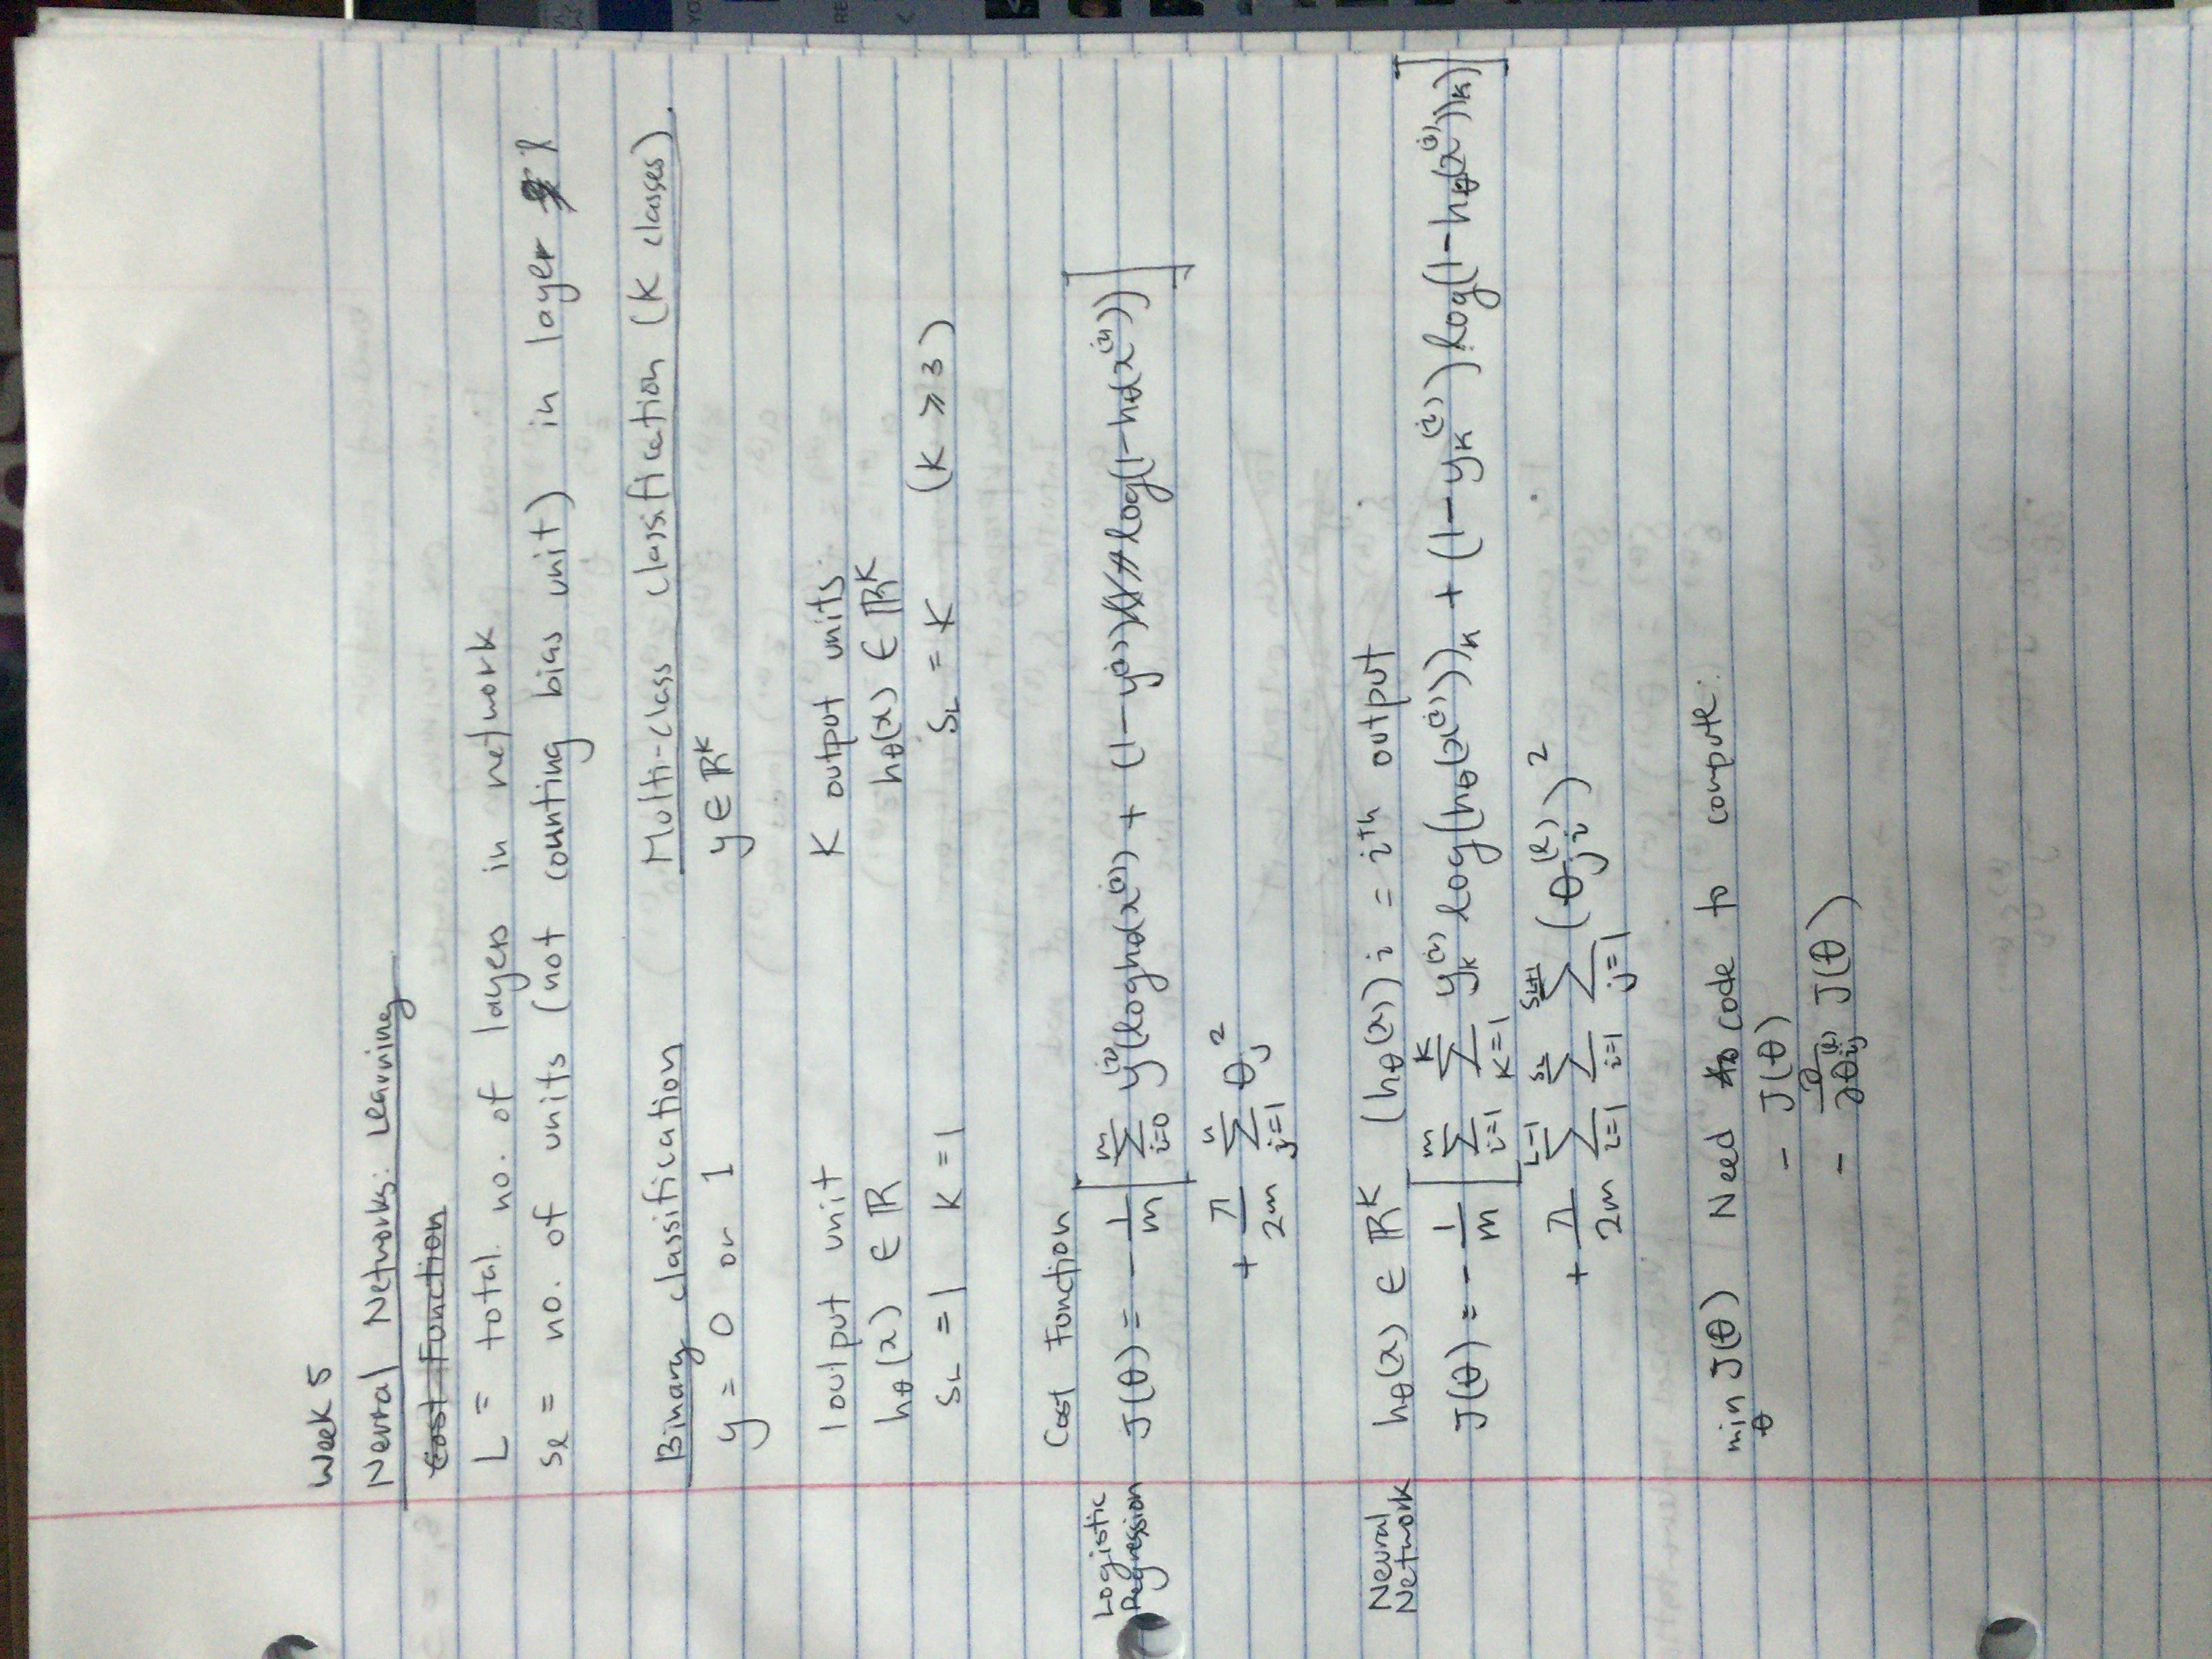 Week 5
Neural Networks: Learning
Cost Function
L = total no. of layers in network
sₗ = no. of units (not counting bias unit) in layer l
Binary classification    Multi-class classification (K classes).
y = 0 or 1    y ∈ ℝᴷ
1 output unit    K output units
hθ(x) ∈ ℝ    hθ(x) ∈ ℝᴷ
S_L = 1    K = 1    S_L = K    (K ⩾ 3)
Cost Function
Logistic Regression    J(θ) = - 1/m [ Σ_{i=0}^{m} y^(i) (log hθ(x^(i)) + (1-y^(i)) log(1-hθ(x^(i))) ]
+ λ/2m Σ_{j=1}^{n} θ_j²
Neural Network    hθ(x) ∈ ℝᴷ    (hθ(x))i = iᵗʰ output
J(θ) = - 1/m [ Σ_{i=1}^{m} Σ_{K=1}^{K} y_K^(i) log(hθ(x^(i)))_K + (1-y_K^(i)) log(1-hθ(x^(i))_K) ]
+ λ/2m Σ_{l=1}^{L-1} Σ_{i=1}^{S_L} Σ_{j=1}^{S_L+1} (θ_ji^(l))²
min_θ J(θ)    Need code to compute:
- J(θ)
- ∂/∂θ_ij^(l) J(θ)